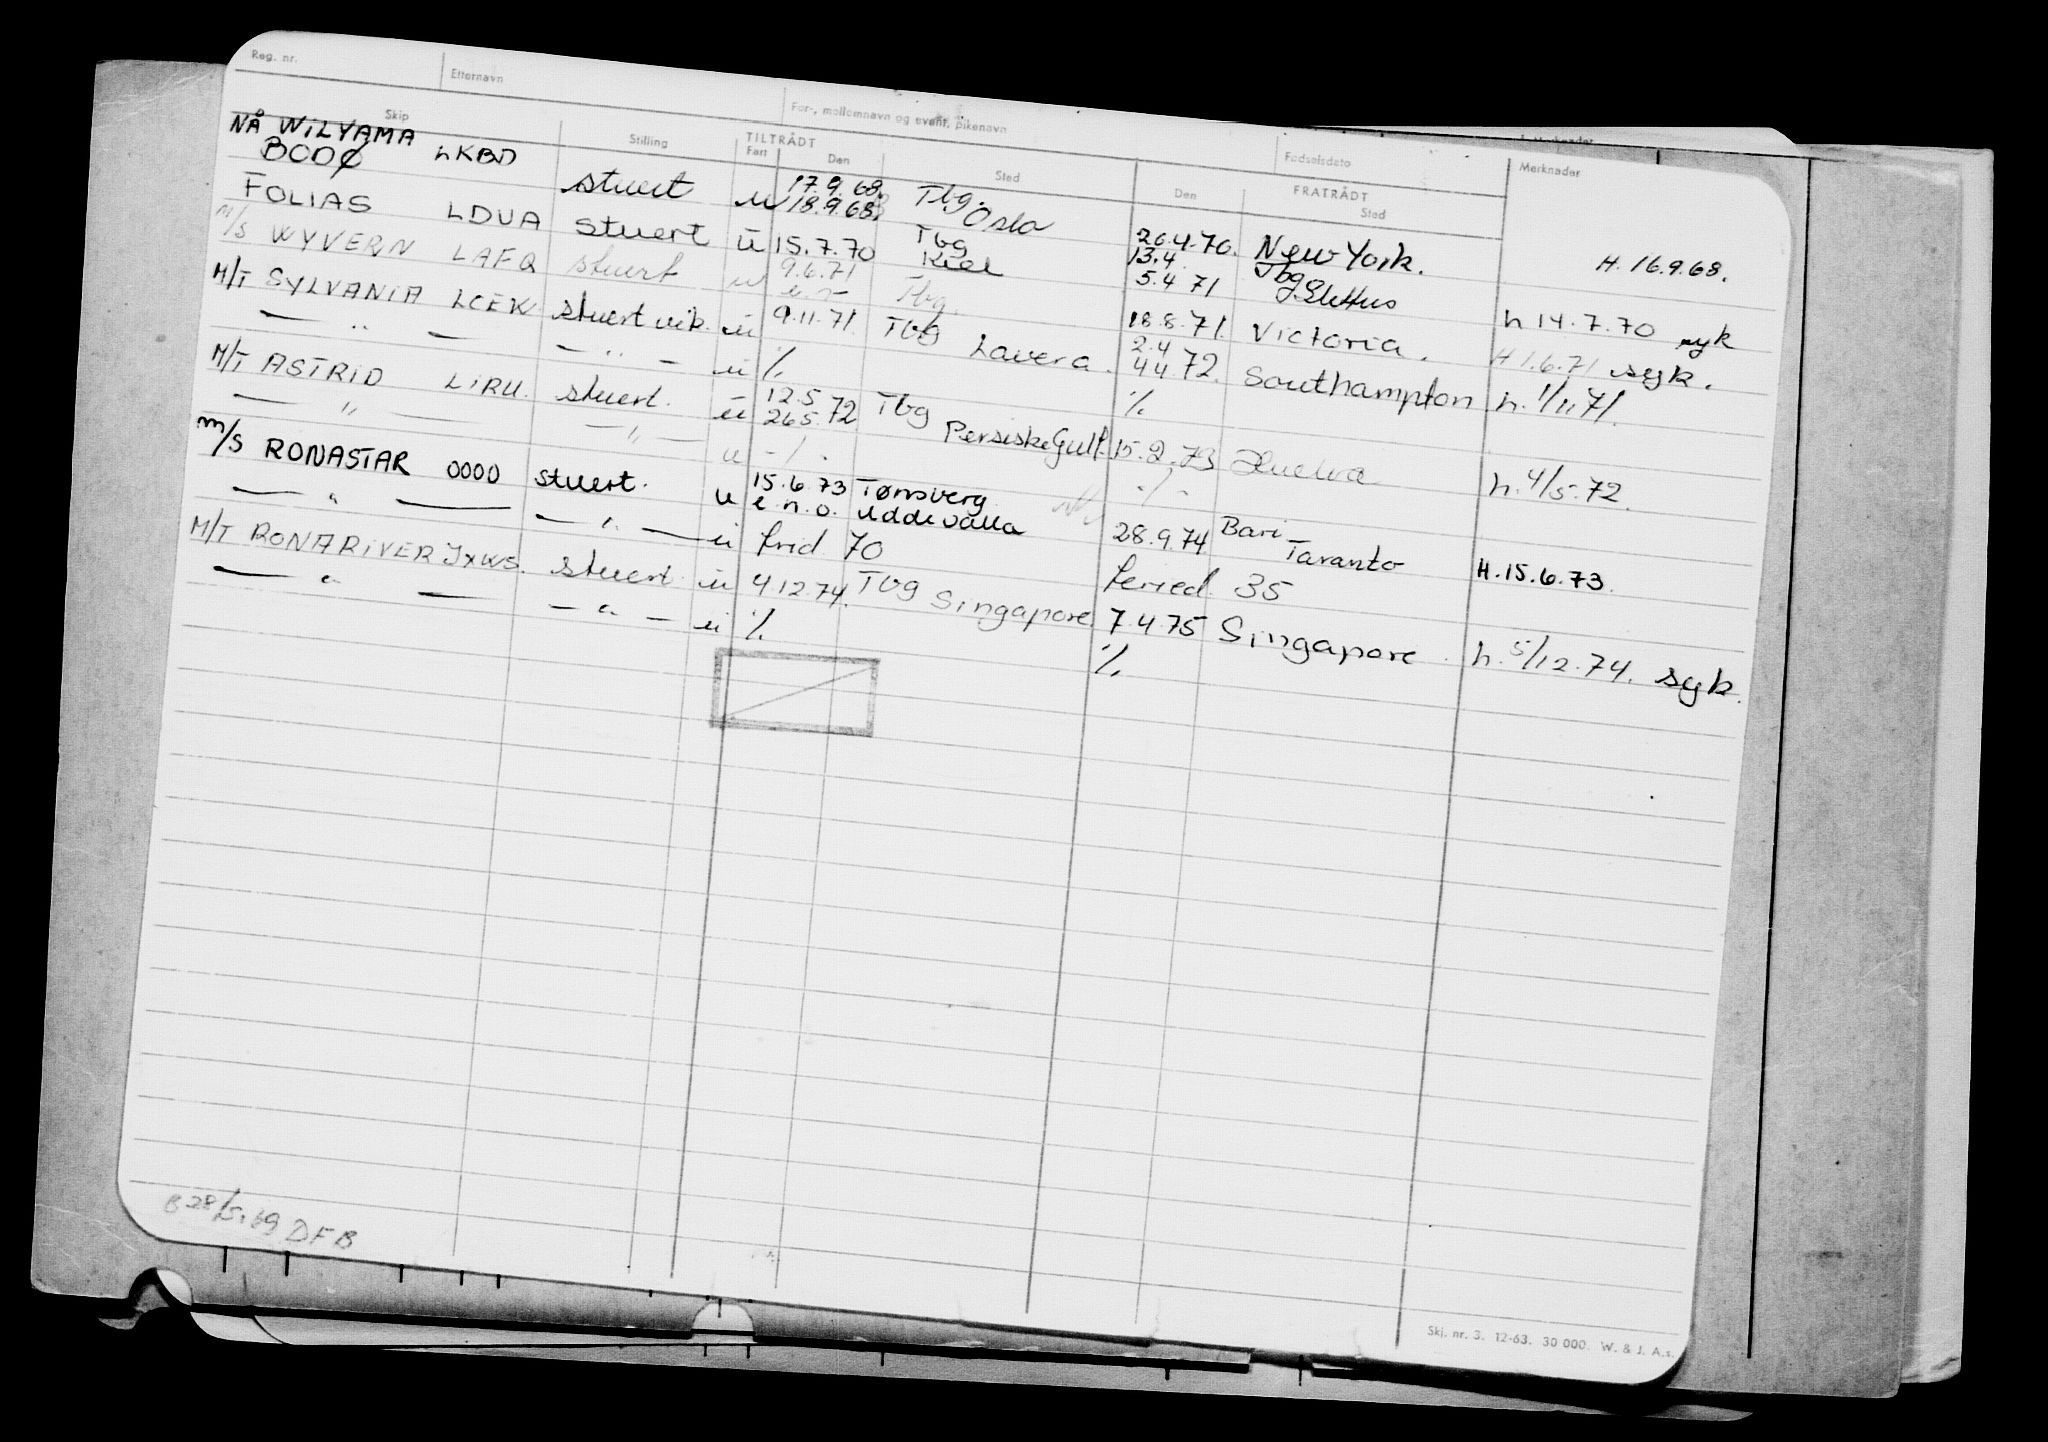 Reg. nr. Etternavn For-, mellomnavn og event. pikenavn Fødselsdato
Skip Stilling TILTRÅDT FRATRÅDT Merknader
Fart Den Sted Den Sted
NÅ WILYAMA
BODØ LKBD stuert u 17.9.68. Tbg. 26.4.70. New York. H. 16.9.68.
18.9.68. Oslo
FOLIAS LDUA stuert u 15.7.70 Tbg 13.4 Tbg h 14.7.70 syk
Kiel 5.4 71
m/s WYVERN LAFQ stuert u 9.6.71 Tbg. 18.8.71. Victoria. H 1.6.71 syk.
M/T SYLVANIA LCEK stuert vik. u 9.11.71. Tbg Lavera. 2.4 Southampton h. 1/11.71.
4 4 72.
— " — — " — u % %
M/T ASTRID LIRU. stuert. u 12.5 Tbg Persiske Gulf. 15.2.73 Huelva h. 4/5.72.
26 5 72
— " — — " — u -/- -/-
m/s RONASTAR 0000 stuert. u 15.6.73 Tønsberg 28.9.74 Bari H. 15.6.73.
e.n.o. Uddevalla Taranto
— " — — " — u frid 70 feried. 35
M/T RONARIVER JXWS. stuert u 4.12.74. Tbg Singapore. 7.4.75 Singapore. h. 5/12.74. syk.
— " — — " — u % %
B 28/5.69 DFB
Skj. nr. 3. 12-63. 30 000. W. & J. A.s.